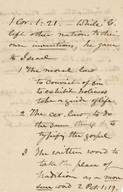 1 Cor. 1:21. While G.
left other nations to their
own inventions, he gave
to Israel
1 The moral law
to convict of sin
to exhibit holiness
to be a guide of life
2 The cer. law, to do
the same things & to
typify the gospel
3 The written word to
take the place of
tradition as a more
sure word 2 Pet. 1:19.